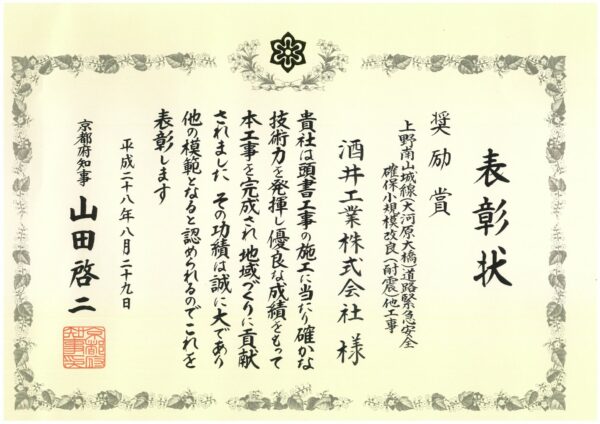 表彰状
奨励賞
上野南山城線(大河原大橋)道路緊急安全
確保小規模改良(耐震)他工事
酒井工業株式会社 様
貴社は頭書工事の施工に当たり確かな
技術力を発揮し優良な成績をもって
本工事を完成され 地域づくりに貢献
されました その功績は誠に大であり
他の模範となると認められるのでこれを
表彰します
平成二十八年八月二十九日
京都府知事 山田啓二
京都府知事印